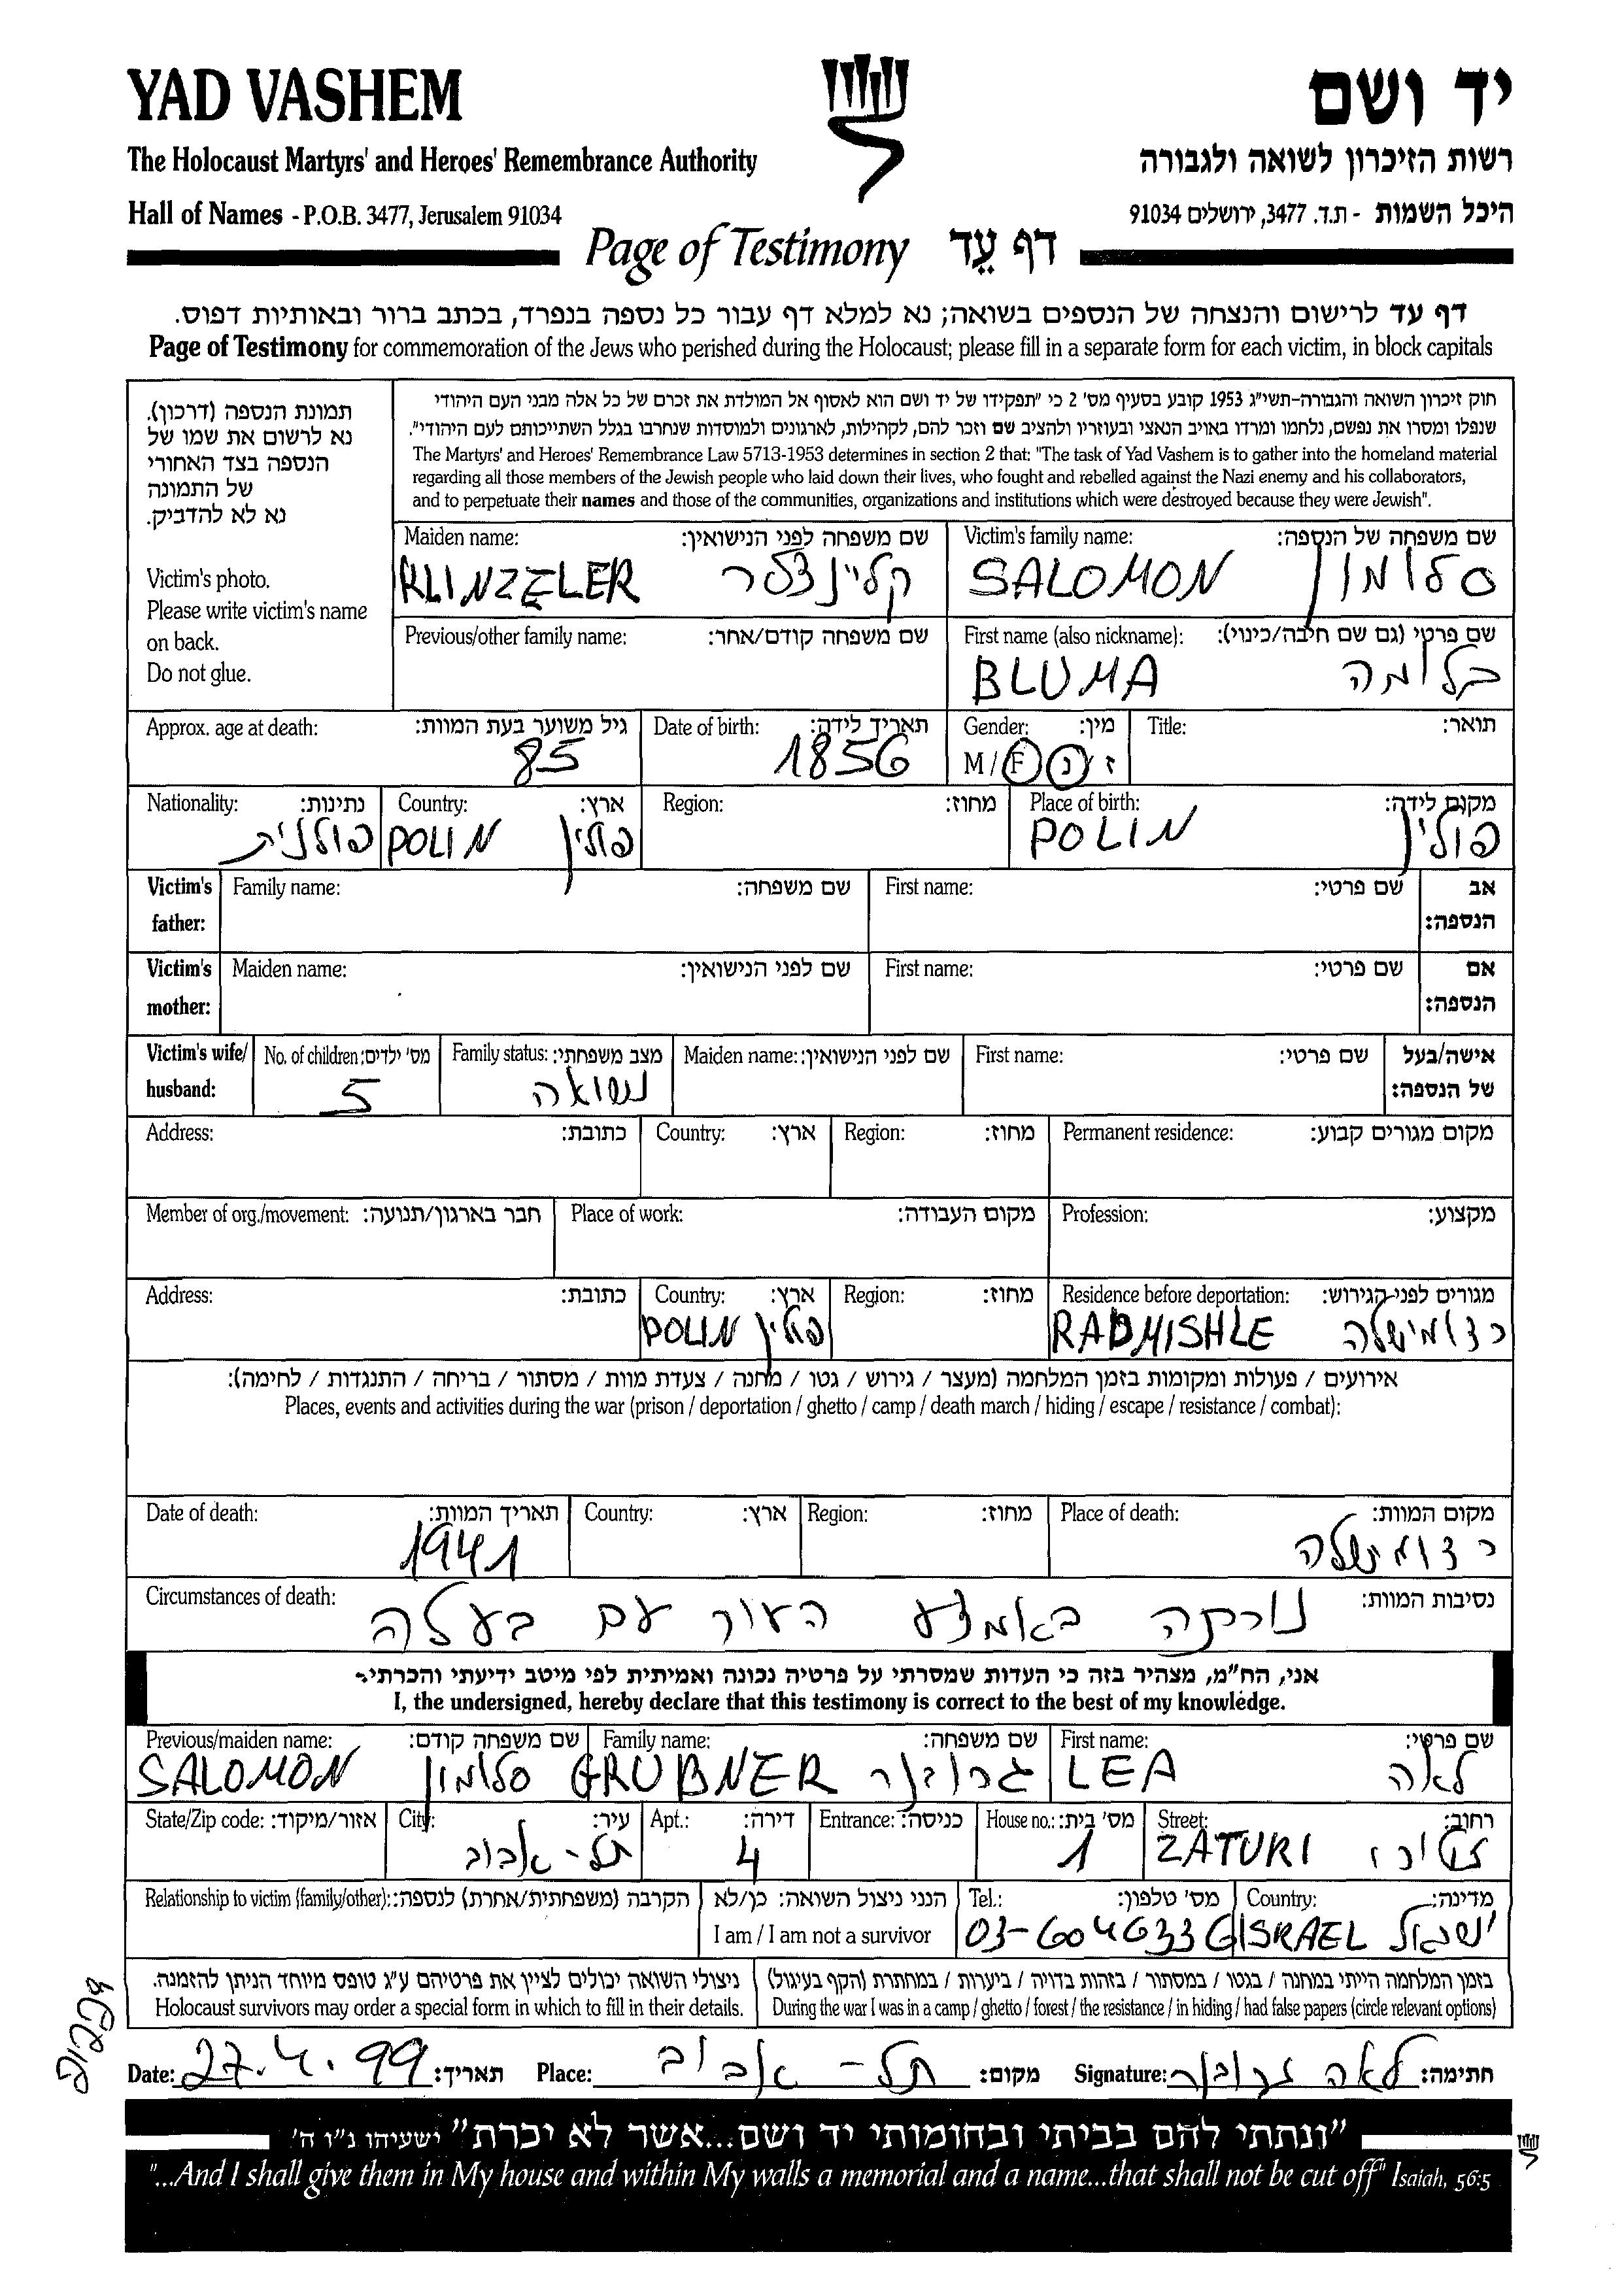 YAD VASHEM יד ושם
The Holocaust Martyrs' and Heroes' Remembrance Authority רשות הזיכרון לשואה ולגבורה
Hall of Names - P.O.B. 3477, Jerusalem 91034 היכל השמות - ת.ד. 3477, ירושלים 91034
Page of Testimony דף עֵד
דף עד לרישום והנצחה של הנספים בשואה; נא למלא דף עבור כל נספה בנפרד, בכתב ברור ובאותיות דפוס.
Page of Testimony for commemoration of the Jews who perished during the Holocaust; please fill in a separate form for each victim, in block capitals
תמונת הנספה (דרכון).
נא לרשום את שמו של
הנספה בצד האחורי
של התמונה
נא לא להדביק.
Victim's photo.
Please write victim's name
on back.
Do not glue.
חוק זיכרון השואה והגבורה-תשי"ג 1953 קובע בסעיף מס' 2 כי "תפקידו של יד ושם הוא לאסוף אל המולדת את זכרם של כל אלה מבני העם היהודי
שנפלו ומסרו את נפשם, נלחמו ומרדו באויב הנאצי ובעוזריו ולהציב שם וזכר להם, לקהילות, לארגונים ולמוסדות שנחרבו בגלל השתייכותם לעם היהודי".
The Martyrs' and Heroes' Remembrance Law 5713-1953 determines in section 2 that: "The task of Yad Vashem is to gather into the homeland material
regarding all those members of the Jewish people who laid down their lives, who fought and rebelled against the Nazi enemy and his collaborators,
and to perpetuate their names and those of the communities, organizations and institutions which were destroyed because they were Jewish".
Maiden name: שם משפחה לפני הנישואין: Victim's family name: שם משפחה של הנספה:
KLINZELER קלינצלר SALOMON סלומון
Previous/other family name: שם משפחה קודם/אחר: First name (also nickname): שם פרטי (גם שם חיבה/כינוי):
BLUMA בלומה
Approx. age at death: גיל משוער בעת המוות: Date of birth: תאריד לידה: Gender: מין: Title: תואר:
85 1856 M / F ז / נ
Nationality: נתינות: Country: ארץ: Region: מחוז: Place of birth: מקום לידה:
פולנית POLIN פולין POLIN פולין
Victim's father: Family name: שם משפחה: First name: שם פרטי: אב הנספה:
Victim's mother: Maiden name: שם לפני הנישואין: First name: שם פרטי: אם הנספה:
Victim's wife/ husband: No. of children: מס' ילדים: Family status: מצב משפחתי: Maiden name: שם לפני הנישואין: First name: שם פרטי: אישה/בעל של הנספה:
5 נשואה
Address: כתובת: Country: ארץ: Region: מחוז: Permanent residence: מקום מגורים קבוע:
Member of org./movement: חבר בארגון/תנועה: Place of work: מקום העבודה: Profession: מקצוע:
Address: כתובת: Country: ארץ: Region: מחוז: Residence before deportation: מגורים לפני הגירוש:
POLIN פולין RADMISHLE רדומישלה
אירועים / פעולות ומקומות בזמן המלחמה (מעצר / גירוש / גטו / מחנה / צעדת מוות / מסתור / בריחה / התנגדות / לחימה):
Places, events and activities during the war (prison / deportation / ghetto / camp / death march / hiding / escape / resistance / combat):
Date of death: תאריך המוות: Country: ארץ: Region: מחוז: Place of death: מקום המוות:
1941 רדומישלה
Circumstances of death: נסיבות המוות:
נורתה באמצע העיר עם בעלה
אני, הח"מ, מצהיר בזה כי העדות שמסרתי על פרטיה נכונה ואמיתית לפי מיטב ידיעתי והכרתי.
I, the undersigned, hereby declare that this testimony is correct to the best of my knowledge.
Previous/maiden name: שם משפחה קודם: Family name: שם משפחה: First name: שם פרטי:
SALOMON סלומון GRUBNER גרובנר LEA לאה
State/Zip code: אזור/מיקוד: City: עיר: Apt.: דירה: Entrance: כניסה: House no.: מס' בית: Street: רחוב:
תל-אביב 4 1 ZATURI
Relationship to victim (family/other): הקרבה (משפחתית/אחרת) לנספה: הנני ניצול השואה: כן/לא Tel.: מס' טלפון: Country: מדינה:
I am / I am not a survivor 03-6046336 ISRAEL ישראל
ניצולי השואה יכולים לציין את פרטיהם ע"ג טופס מיוחד הניתן להזמנה. בזמן המלחמה הייתי במחנה / בגטו / במסתור / בזהות בדויה / ביערות / במחתרת (הקף בעיגול)
Holocaust survivors may order a special form in which to fill in their details. During the war I was in a camp / ghetto / forest / the resistance / in hiding / had false papers (circle relevant options)
Date: 27.4.99 תאריך: Place: תל-אביב מקום: Signature: לאה גרובנר חתימה:
"ונתתי להם בביתי ובחומותי יד ושם...אשר לא יכרת" ישעיהו נ"ו ה'
"...And I shall give them in My house and within My walls a memorial and a name...that shall not be cut off" Isaiah, 56:5